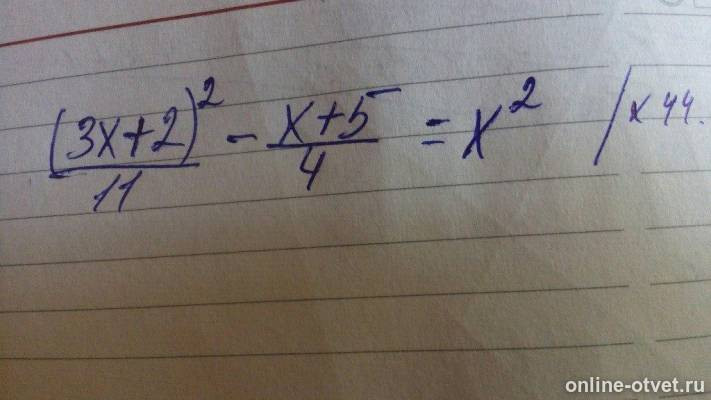 (3x+2)²/11 - x+5/4 = x² / x 44.
online-otvet.ru